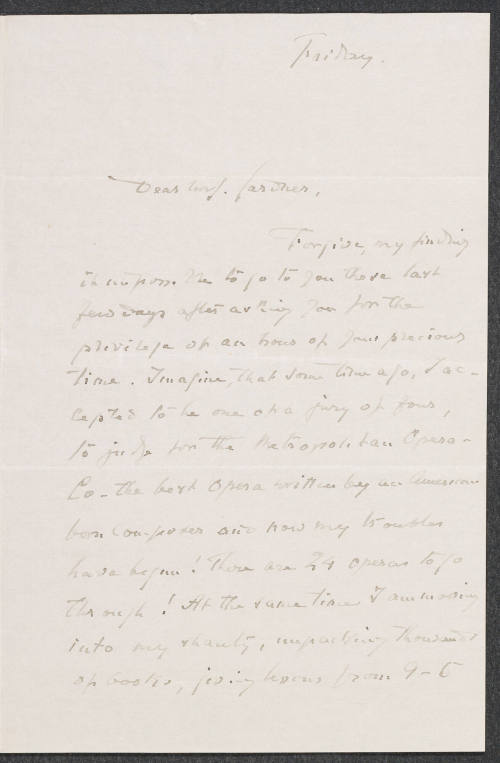 Friday.
Dear Mrs. Gardner,
Forgive, my finding
it impossible to go to you these last
few days after asking you for the
privilege of an hour of your precious
time. Imagine, that some time ago, I ac-
cepted to be one of a jury of four,
to judge for the Metropolitan Opera-
Co- the best Opera written by an American
born composer and now my troubles
have begun! There are 24 operas to go
through! At the same time I am moving
into my shanty, unpacking thousands
of books, giving lessons from 9-6